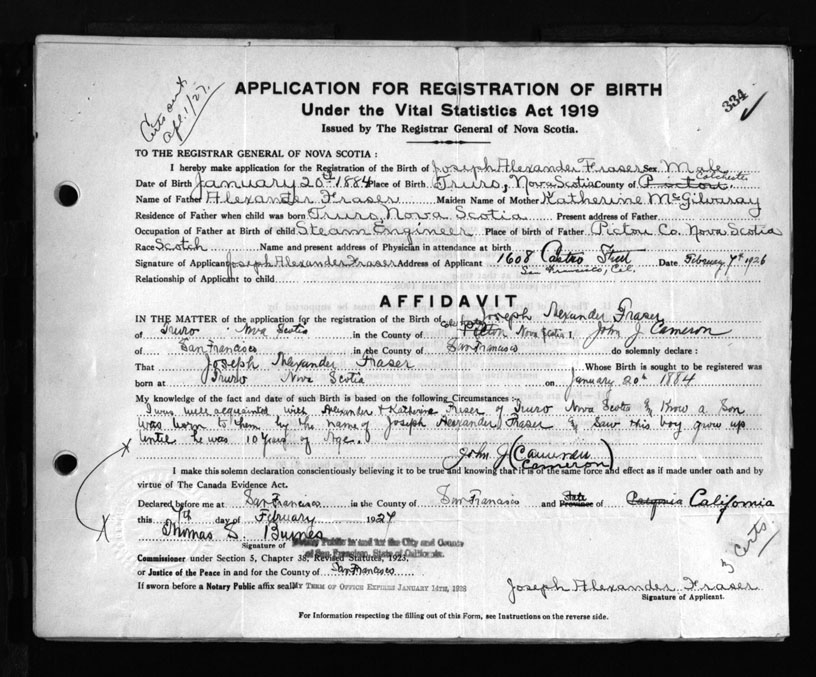 Certs sent
Apl. 1/27.
334
APPLICATION FOR REGISTRATION OF BIRTH
Under the Vital Statistics Act 1919
Issued by The Registrar General of Nova Scotia.
TO THE REGISTRAR GENERAL OF NOVA SCOTIA :
I hereby make application for the Registration of the Birth of Joseph Alexander Fraser Sex Male
Colchester
Date of Birth January 20th 1884 Place of Birth Truro, Nova Scotia County of Pictou.
Name of Father Alexander Fraser Maiden Name of Mother Katherine McGilvaray
Residence of Father when child was born Truro, Nova Scotia Present address of Father
Occupation of Father at Birth of child Steam Engineer Place of birth of Father Pictou Co. Nova Scotia
Race Scotch Name and present address of Physician in attendance at birth
Signature of Applicant Joseph Alexander Fraser Address of Applicant 1608 Castro Street Date February 7th 1926
San Francisco, Cal.
Relationship of Applicant to child
AFFIDAVIT
IN THE MATTER of the application for the registration of the Birth of Joseph Alexander Fraser
of Truro Nova Scotia in the County of Picton Nova Scotia I, John J Cameron
of San Francisco in the County of San Francisco do solemnly declare :
That Joseph Alexander Fraser Whose Birth is sought to be registered was
born at Truro Nova Scotia on January 20th 1884
My knowledge of the fact and date of such Birth is based on the following Circumstances :-
I was well acquainted with Alexander & Katherine Fraser of Truro Nova Scotia & Know a Son
was born to them by the name of Joseph Alexander Fraser & Saw this boy grow up
until he was 10 years of Age.
John J (Cameron
Cameron)
I make this solemn declaration conscientiously believing it to be true and knowing that it is of the same force and effect as if made under oath and by
virtue of The Canada Evidence Act.
Declared before me at San Francisco in the County of San Francisco and State Province of California California
this 7th day of February 1927
Thomas S. Burnes
Signature of Notary Public in and for the City and County
of San Francisco, State of California.
Commissioner under Section 5, Chapter 38, Revised Statutes, 1923.
or Justice of the Peace in and for the County of San Francisco
If sworn before a Notary Public affix seal MY TERM OF OFFICE EXPIRES JANUARY 14TH, 1928
3 Certs.
Joseph Alexander Fraser
Signature of Applicant.
For Information respecting the filling out of this Form, see Instructions on the reverse side.